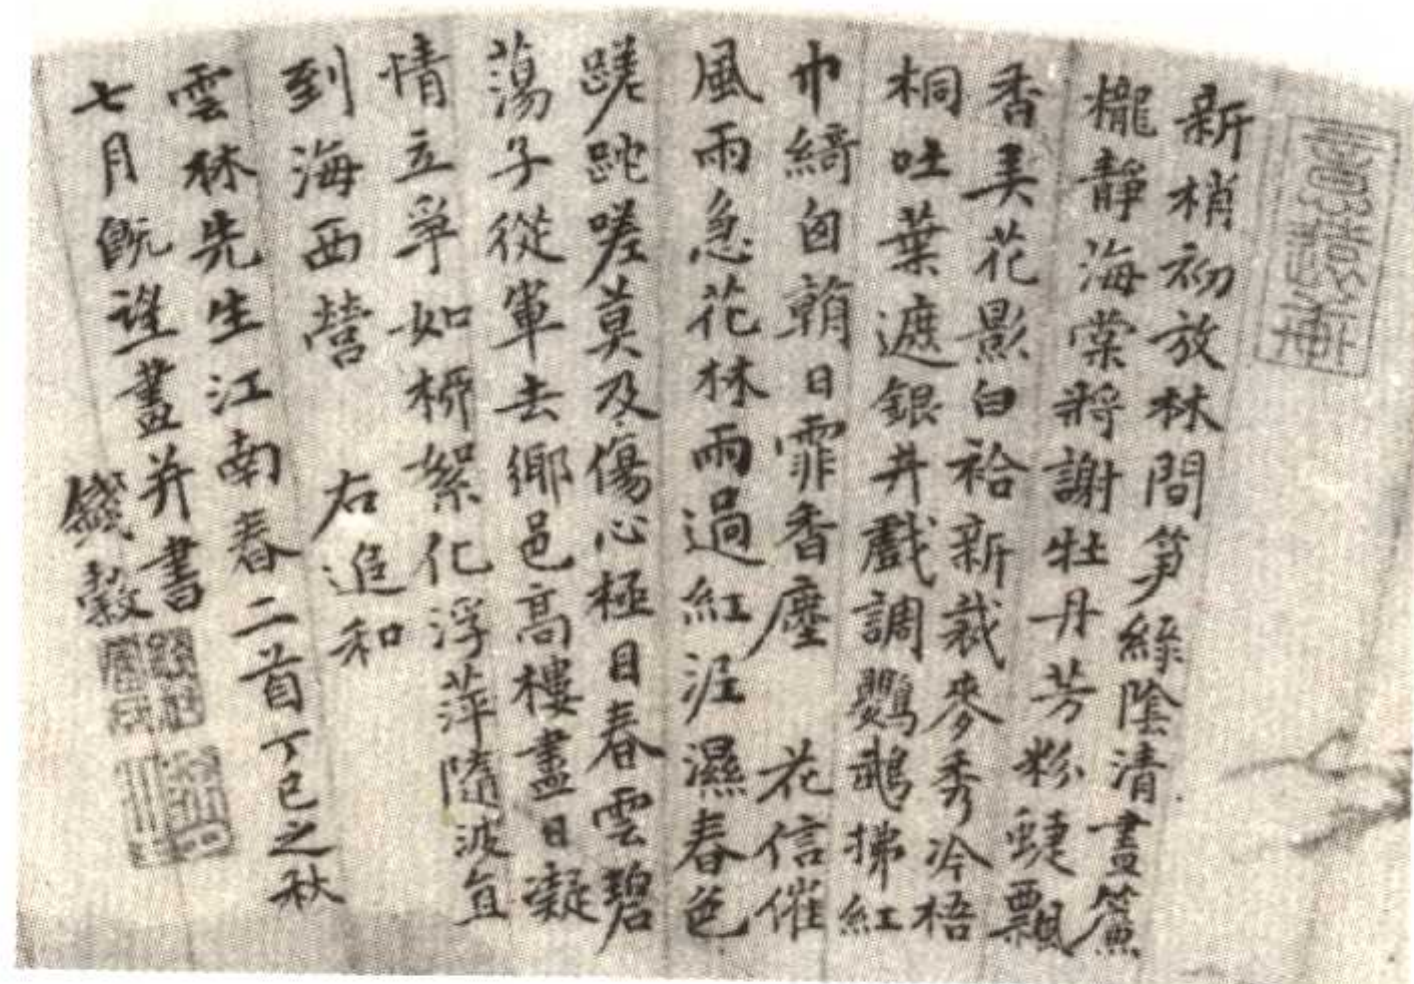 新梢初放林間笋綠陰清晝簾
櫳靜海棠將謝牡丹芳粉蜨飄
香美花影白袷新裁麥秀冷梧
桐吐葉遮銀井戲調鸚鵡拂紅
巾綺囱朝日霏香塵 花信催
風雨急花林雨過紅涯濕春色
蹉跎嗟莫及傷心極目春雲碧
蕩子從軍去鄉邑高樓盡日凝
情立爭如桺絮化浮萍隨波直
到海西營 右追和
雲林先生江南春二首丁巳之秋
七月旣望畫并書
錢穀